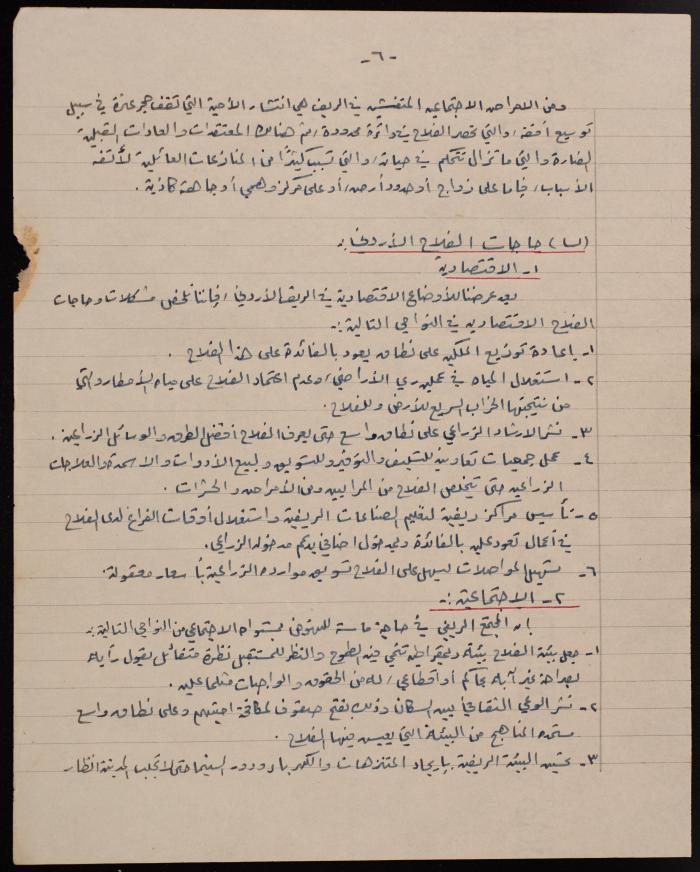 -٦-
ومن الامراض الاجتماعية المتفشية في الريف هي انتشار الأمية التي تقف حجر عثرة في سبيل
توسيع أفقه، والتي تحصر الفلاح في دائرة محدودة، ثم هنالك المعتقدات والعادات القبلية
الضارة والتي ما تزال تتحكم في حياته، والتي تسبب كثيرًا من المنازعات العائلية لأتفه
الأسباب، فإما على زواج أو حدود أرض، أو على مركز وهمي أو جاهة كاذبة.
حاجات الفلاح الأردني :
١- الاقتصادية
بعد عرضنا للأوضاع الاقتصادية في الريف الأردني، فإننا نلخص مشكلات وحاجات
الفلاح الاقتصادية في النواحي التالية :-
١- إعادة توزيع الملكية على نطاق يعود بالفائدة على هذا الفلاح .
٢- استغلال المياه في عملية ري الأراضي، وعدم اعتماد الفلاح على مياه الأمطار والتي
من نتيجتها الخراب السريع للأرض وللفلاح.
٣- نشر الارشاد الزراعي على نطاق واسع حتى يعرف الفلاح أفضل الطرق والوسائل الزراعية .
٤- عمل جمعيات تعاونية للتسليف والتوفير وللتسويق ولبيع الأدوات والاسمدة والعلاجات
الزراعية حتى يتخلص الفلاح من المرابين ومن الأمراض والحشرات .
٥- تأسيس مراكز ريفية لتعليم الصناعات الريفية واستغلال أوقات الفراغ لدى الفلاح
في أعمال تعود عليه بالفائدة وبمدخول اضافي يدعم مدخوله الزراعي.
٦- تسهيل المواصلات ليسهل على الفلاح تسويق موارده الزراعية بأسعار معقولة.
٢- الاجتماعية :-
إن المجتمع الريفي في حاجة ماسة للنهوض بمستواه الاجتماعي من النواحي التالية :-
١- جعل بيئة الفلاح بيئة ديمقراطية تنمي فيه الطموح والنظر للمستقبل نظرة متفائل يقول رأيه
بصراحة غير آبه بحاكم أو اقطاعي، له من الحقوق والواجبات مثلما عليه .
٢- نشر الوعي الثقافي بين السكان وذلك بفتح صفوف لمكافحة اميتهم وعلى نطاق واسع
مستمدة المناهج من البيئة التي يعيش فيها الفلاح .
٣- تحسين البيئة الريفية بإيجاد المتنزهات والكهرباء ودور السينما حتى لا تجلب المدينة انظار